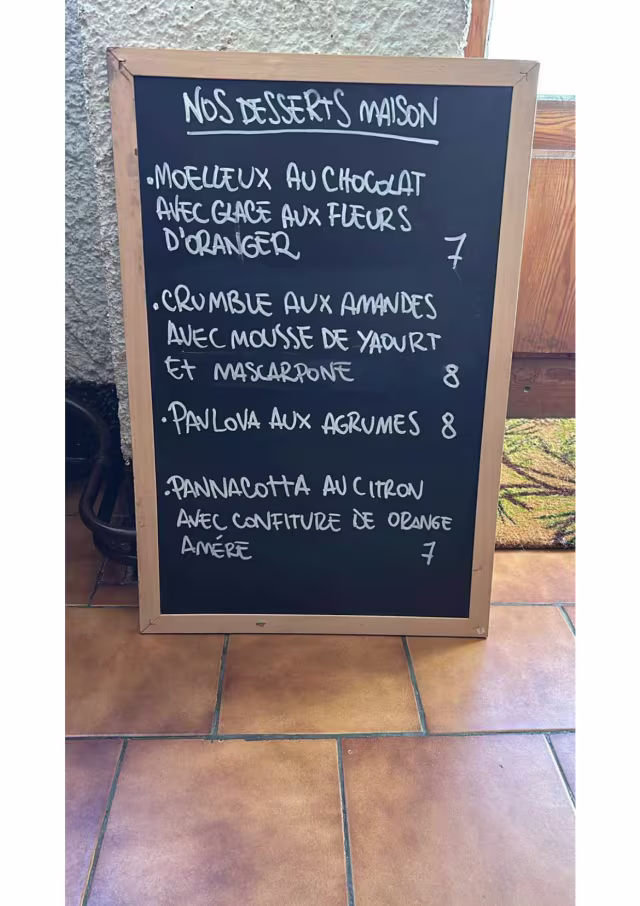 NOS DESSERTS MAISON
•MOELLEUX AU CHOCOLAT
AVEC GLACE AUX FLEURS
D'ORANGER 7
•CRUMBLE AUX AMANDES
AVEC MOUSSE DE YAOURT
ET MASCARPONE 8
•PAVLOVA AUX AGRUMES 8
•PANNACOTTA AU CITRON
AVEC CONFITURE DE ORANGE
AMÉRE 7